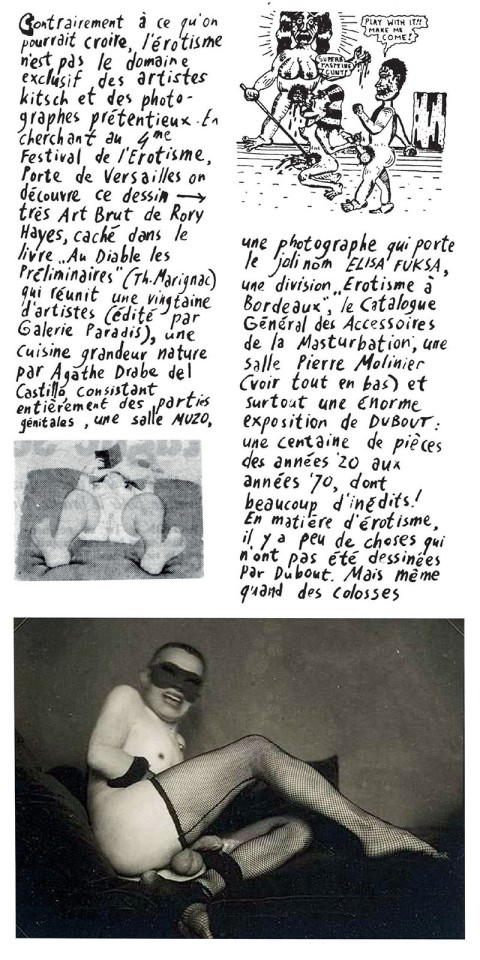 Contrairement à ce qu'on
pourrait croire, l'érotisme
n'est pas le domaine
exclusif des artistes
kitsch et des photo-
graphes prétentieux. En
cherchant au 4me
Festival de l'Erotisme,
Porte de Versailles on
découvre ce dessin →
très Art Brut de Rory
Hayes, caché dans le
livre „Au Diable les
Préliminaires" (Th. Marignac)
qui réunit une vingtaine
d'artistes (édité par
Galerie Paradis), une
cuisine grandeur nature
par Agathe Drabe del
Castillo consistant
entièrement des parties
génitales, une salle MUZO,
PLAY WITH IT!!
MAKE ME
COME!
SUPERB
CUNT!
une photographe qui porte
le joli nom ELISA FUKSA,
une division „Erotisme à
Bordeaux", le Catalogue
Général des Accessoires
de la Masturbation, une
salle Pierre Molinier
(voir tout en bas) et
surtout une énorme
exposition de DUBOUT:
une centaine de pièces
des années '20 aux
années '70, dont
beaucoup d'inédits!
En matière d'érotisme,
il y a peu de choses qui
n'ont pas été dessinées
par Dubout. Mais même
quand des colosses